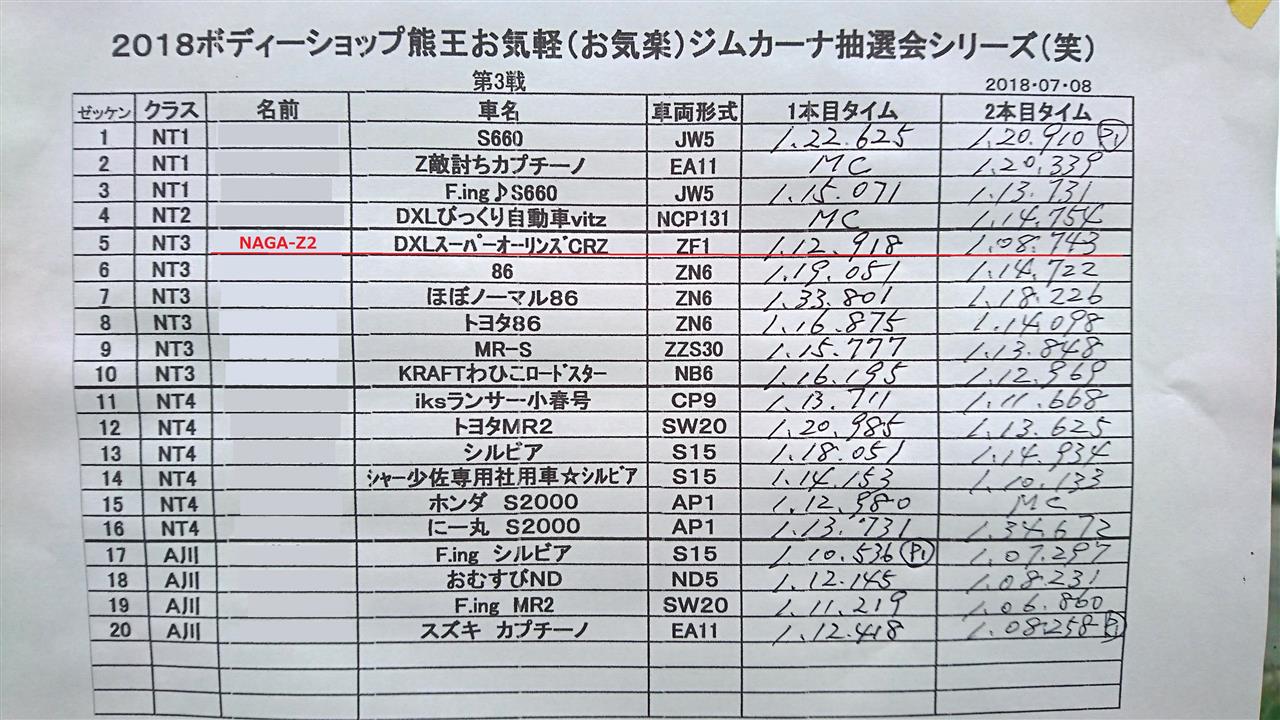 2018ボディーショップ熊王お気軽(お気楽)ジムカーナ抽選会シリーズ(笑)
第3戦 2018・07・08
ゼッケン クラス 名前 車名 車両形式 1本目タイム 2本目タイム
1 NT1 S660 JW5 1.22.625 1.20.910 P1
2 NT1 Z敵討ちカプチーノ EA11 MC 1.20.339
3 NT1 F.ing♪S660 JW5 1.15.071 1.13.731
4 NT2 DXLびっくり自動車vitz NCP131 MC 1.14.754
5 NT3 NAGA-Z2 DXLスーパーオーリンズCRZ ZF1 1.12.918 1.08.743
6 NT3 86 ZN6 1.19.051 1.14.722
7 NT3 ほぼノーマル86 ZN6 1.33.801 1.18.226
8 NT3 トヨタ86 ZN6 1.16.875 1.14.098
9 NT3 MR-S ZZS30 1.15.777 1.13.848
10 NT3 KRAFTわひころードスター NB6 1.16.195 1.12.969
11 NT4 iksランサー小春号 CP9 1.13.711 1.11.668
12 NT4 トヨタMR2 SW20 1.20.985 1.13.625
13 NT4 シルビア S15 1.18.051 1.14.934
14 NT4 シャー少佐専用社用車☆シルビア S15 1.14.153 1.10.133
15 NT4 ホンダ S2000 AP1 1.12.980 MC
16 NT4 にー丸 S2000 AP1 1.13.731 1.34.672
17 AJ川 F.ing シルビア S15 1.10.536 P1 1.07.297
18 AJ川 おむすびND ND5 1.12.145 1.08.231
19 AJ川 F.ing MR2 SW20 1.11.219 1.06.860
20 AJ川 スズキ カプチーノ EA11 1.12.418 1.08.258 P1